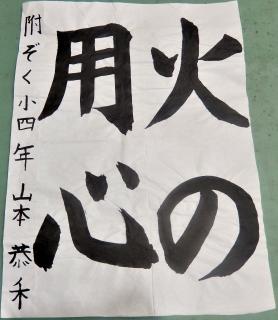 火の
用心
附ぞく小四年山本恭禾